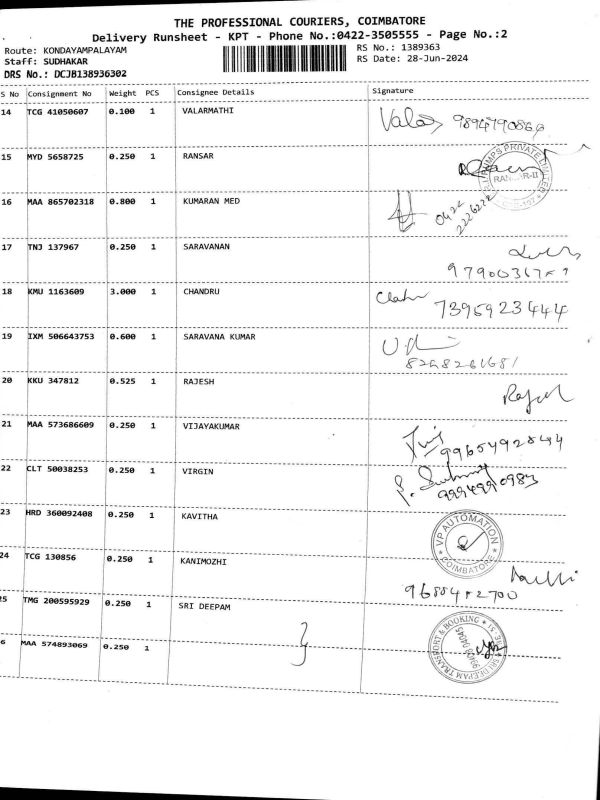 THE PROFESSIONAL COURIERS, COIMBATORE
Delivery Runsheet - KPT - Phone No.:0422-3505555 - Page No.:2
Route: KONDAYAMPALAYAM RS No.: 1389363
Staff: SUDHAKAR RS Date: 28-Jun-2024
DRS No.: DCJB138936302
S No Consignment No Weight PCS Consignee Details Signature
14 TCG 41050607 0.100 1 VALARMATHI
15 MYD 5658725 0.250 1 RANSAR
16 MAA 865702318 0.800 1 KUMARAN MED
0422
17 TNJ 137967 0.250 1 SARAVANAN
18 KMU 1163609 3.000 1 CHANDRU
7395923444
19 IXM 506643753 0.600 1 SARAVANA KUMAR
20 KKU 347812 0.525 1 RAJESH
21 MAA 573686609 0.250 1 VIJAYAKUMAR
22 CLT 50038253 0.250 1 VIRGIN
9994990983
23 HRD 360092408 0.250 1 KAVITHA VP AUTOMATION COIMBATORE
24 TCG 130856 0.250 1 KANIMOZHI
25 TMG 200595929 0.250 1 SRI DEEPAM
SRI DEEPAM TRANSPORT & BOOKING
6 MAA 574893069 0.250 1